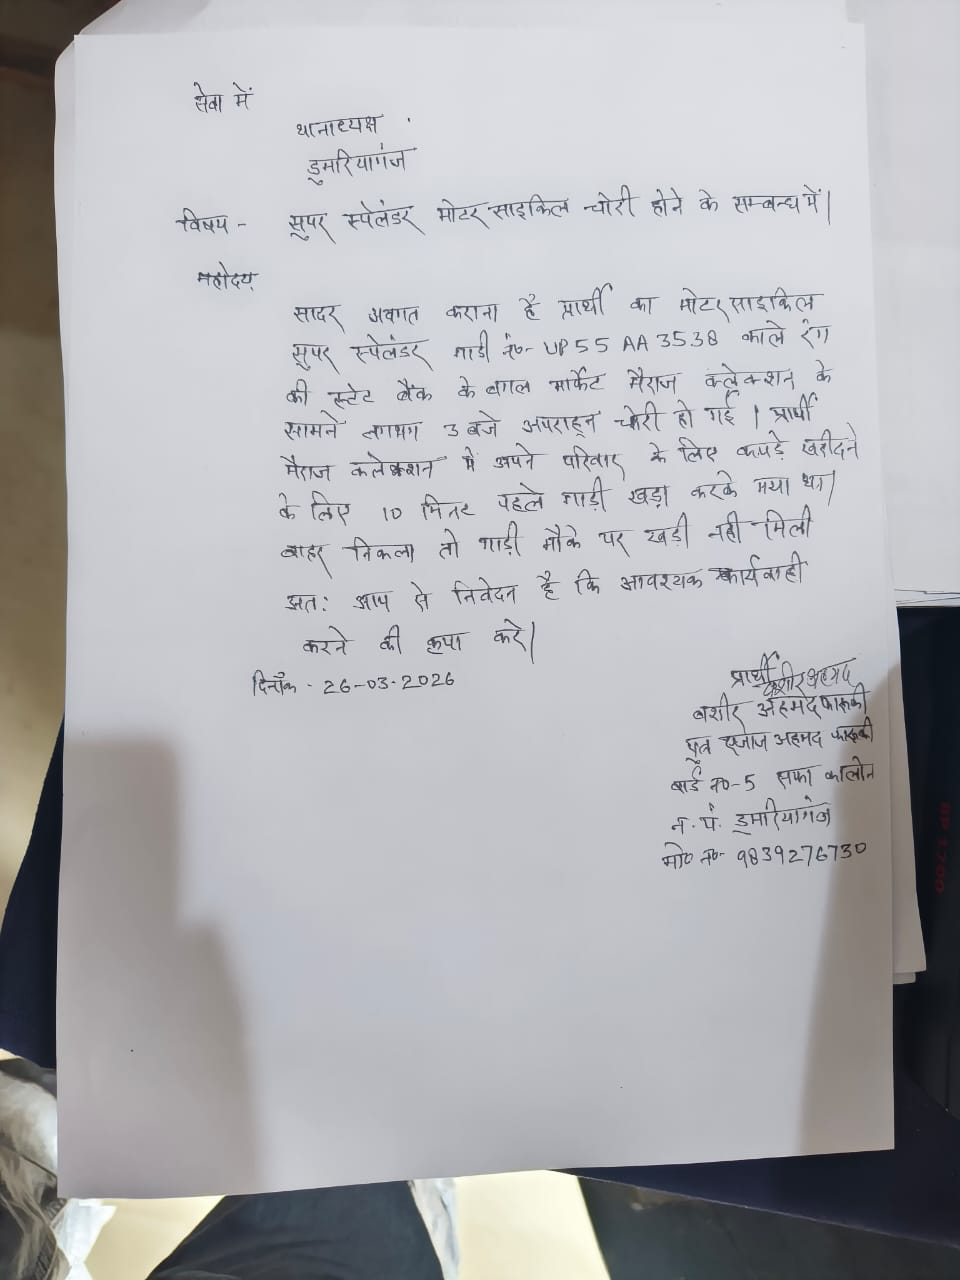 सेवा में
थानाध्यक्ष
डुमरियागंज
विषय - सुपर स्पेलंडर मोटर साइकिल चोरी होने के सम्बन्ध में|
महोदय
सादर अवगत कराना है प्रार्थी का मोटर साइकिल
सुपर स्पेलंडर गाडी नं०- UP55 AA 3538 काले रंग
की स्टेट बैंक के बगल मार्केट मैराज क्लेक्शन के
सामने लगभग 3 बजे अपराह्न चोरी हो गई | प्रार्थी
मैराज कलेक्शन में अपने परिवार के लिए कपड़े खरीदने
के लिए 10 मिनट पहले गाड़ी खड़ा करके गया था|
बाहर निकला तो गाड़ी मौके पर खड़ी नही मिली
अत: आप से निवेदन है कि आवश्यक कार्यवाही
करने की कृपा करे|
दिनाँक - 26-03-2026
प्रार्थी
बशीर अहमद
बशीर अहमद फारूकी
पुत्र एजाज अहमद फारूकी
वार्ड न०-5 सफा कालोन
न. पं. डुमरियागंज
मो० न०- 9839276730